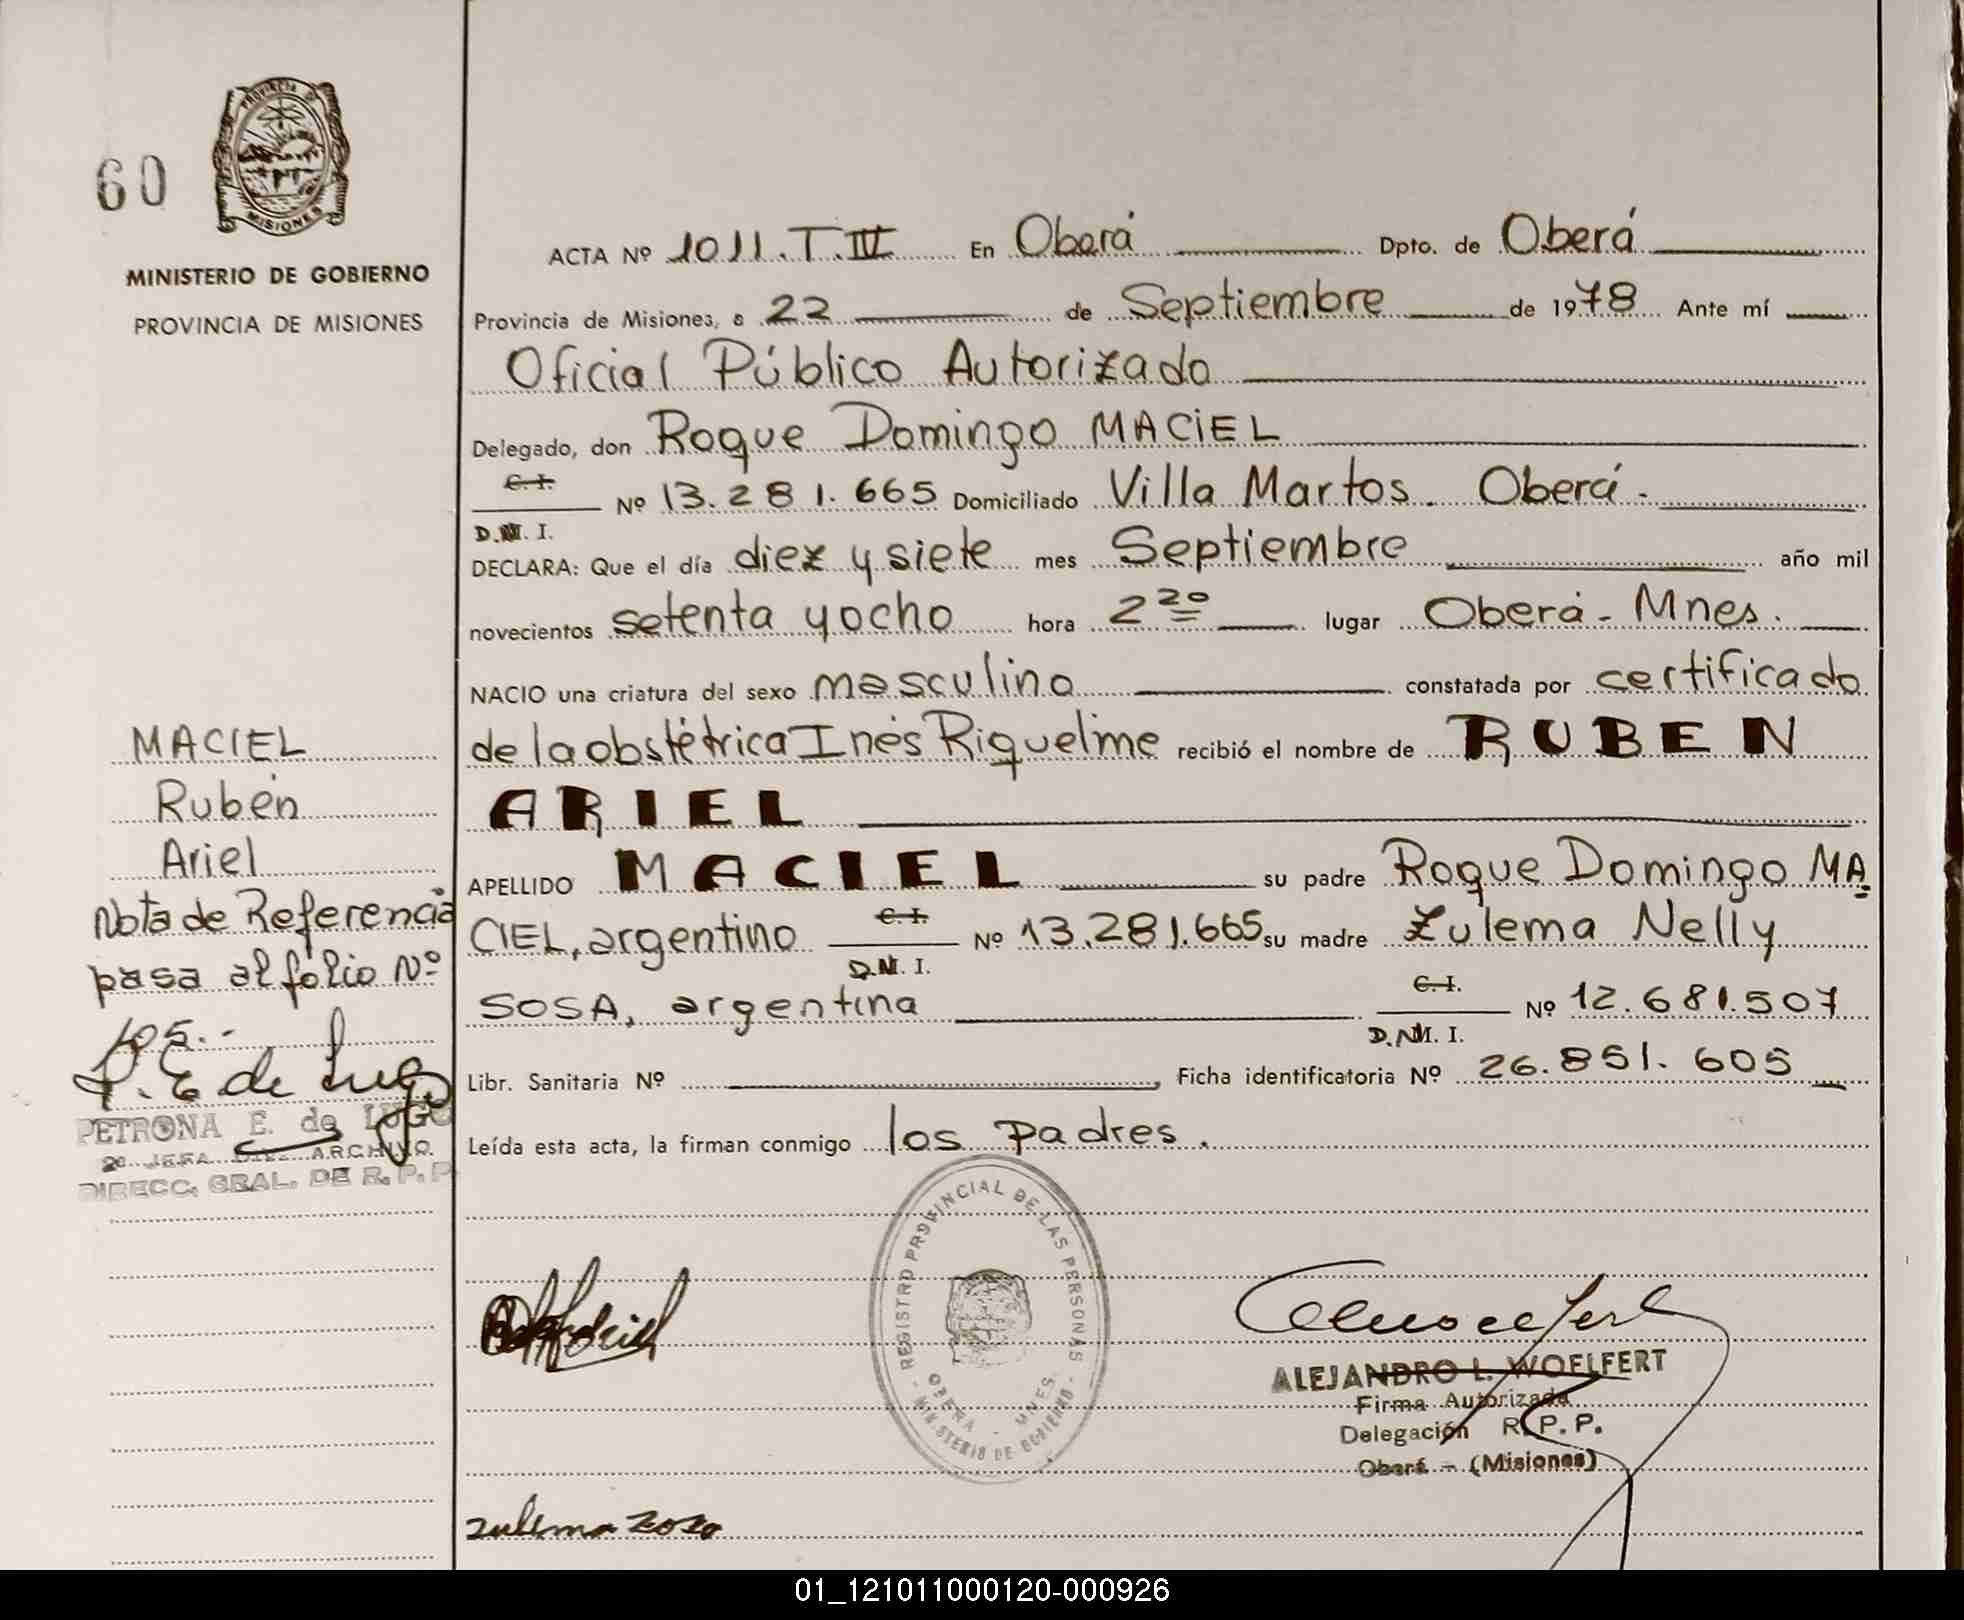 60
PROVINCIA DE
MISIONES
MINISTERIO DE GOBIERNO
PROVINCIA DE MISIONES
ACTA Nº 1011.T.IV En Oberá Dpto. de Oberá
Provincia de Misiones, a 22 de Septiembre de 1978 Ante mí
Oficial Público Autorizado
Delegado, don Roque Domingo MACIEL
C. I.
Nº 13.281.665 Domiciliado Villa Martos. Oberá.
D.N. I.
DECLARA: Que el día diez y siete mes Septiembre año mil
novecientos setenta y ocho hora 2 20 lugar Oberá - Mnes.
NACIO una criatura del sexo masculino constatada por certificado
de la obstétrica Inés Riquelme recibió el nombre de RUBEN
ARIEL
APELLIDO MACIEL su padre Roque Domingo MA
CIEL, argentino C. I. Nº 13.281.665 su madre Zulema Nelly
D.N. I.
SOSA, argentina C. I. Nº 12.681.507
D.N. I.
Libr. Sanitaria Nº Ficha identificatoria Nº 26.851.605
Leída esta acta, la firman conmigo los padres.
MACIEL
Rubén
Ariel
Nota de Referencia
pasa al folio Nº
105.-
P. E de Lugo
PETRONA E. de LUGO
2º JEFA DIV. ARCHIVO.
DIRECC. GRAL. DE R. P. P.
REGISTRO PROVINCIAL DE LAS PERSONAS
OBERA - MNES.
- MINISTERIO DE GOBIERNO -
ALEJANDRO L. WOELFERT
Firma Autorizada
Delegación R. P. P.
Oberá - (Misiones)
zulema zosa
01_121011000120-000926